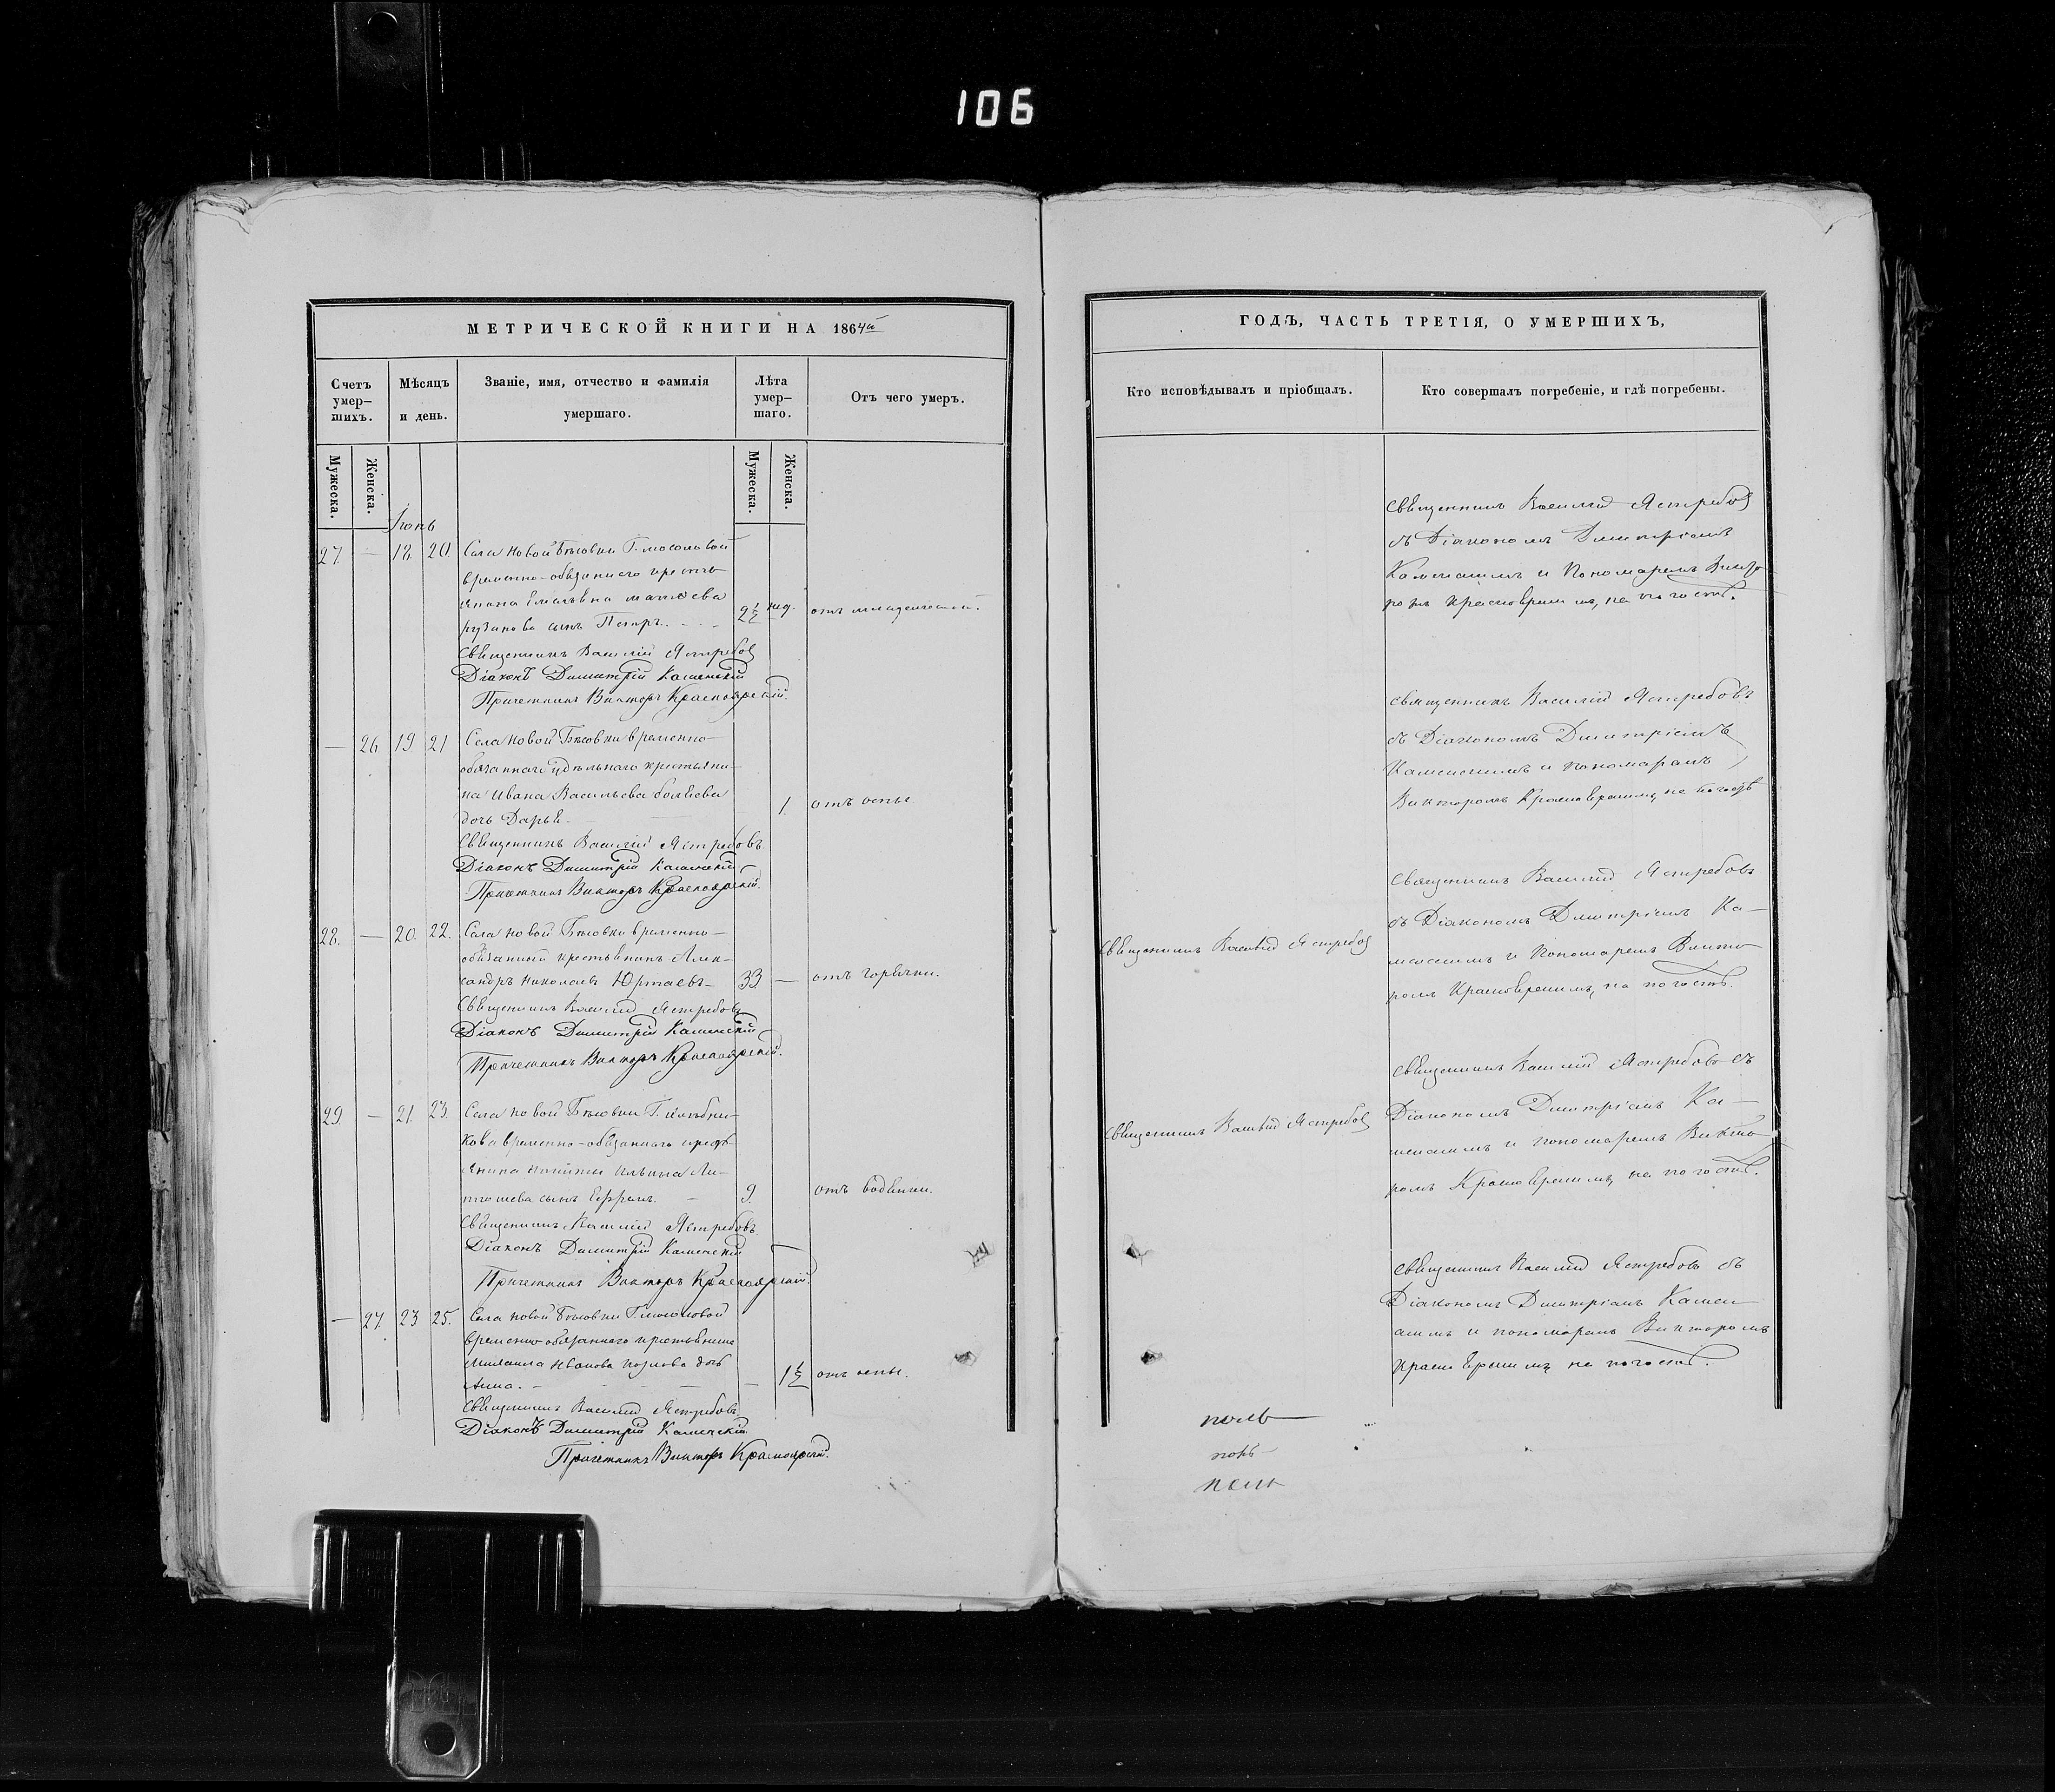 106
МЕТРИЧЕСКОЙ КНИГИ НА 1864й
Счетъ умер-
шихъ.
Мѣсяцъ
и день.
Званіе, имя, отчество и фамилія
умершаго.
Лѣта
умер-
шаго.
Отъ чего умеръ.
Мужеска.
Женска.
Мужеска.
Женска.
Іюнь
27. — 18. 20. Села Новой Бѣсовки Г. Мосоловой
временно-обязаннаго кресть
янина Емельяна
сынъ Петръ. 2½ нед. отъ младенческой.
Священникъ Василій Ястребовъ
Діаконъ Димитрій Каменскій
Причетникъ Викторъ Красноярскій.
— 26. 19 21 Села Новой Бѣсовки временно-
обязаннаго удѣльнаго крестьяни-
на Ивана Васильева
дочь Дарья — 1. отъ оспы
Священникъ Василій Ястребовъ
Діаконъ Димитрій Каменскій
Причетникъ Викторъ Красноярскій.
28. — 20. 22. Села Новой Бѣсовки временно-
обязанный крестьянинъ Алек-
сандръ Николаевъ Юртаевъ — 33 — отъ горячки.
Священникъ Василій Ястребовъ
Діаконъ Димитрій Каменскій
Причетникъ Викторъ Красноярскій.
29. — 21. 23. Села Новой Бѣсовки Г.
временно-обязаннаго кресть
янина Никиты Ильина
сынъ Ефремъ. — 9. отъ водянки.
Священникъ Василій Ястребовъ
Діаконъ Димитрій Каменскій
Причетникъ Викторъ Красноярскій.
— 27. 23 25. Села Новой Бѣсовки Г. Мосоловой
временно-обязаннаго крестьянина
Михаила Иванова дочь
Анна. — — 1½ отъ оспы.
Священникъ Василій Ястребовъ
Діаконъ Димитрій Каменскій
Причетникъ Викторъ Красноярскій.
ГОДЪ, ЧАСТЬ ТРЕТІЯ, О УМЕРШИХЪ,
Кто исповѣдывалъ и пріобщалъ.
Кто совершалъ погребеніе, и гдѣ погребены.
Священникъ Василій Ястребовъ
съ Діакономъ Димитріемъ
Каменскимъ и Пономаремъ Викто
ромъ Красноярскимъ, на погостѣ.
Священникъ Василій Ястребовъ
съ Діакономъ Димитріемъ
Каменскимъ и пономаремъ
Викторомъ Красноярскимъ, на погостѣ
Священникъ Василій Ястребовъ
Священникъ Василій Ястребовъ
съ Діакономъ Димитріемъ Ка-
менскимъ и Пономаремъ Викто
ромъ Красноярскимъ, на погостѣ.
Священникъ Василій Ястребовъ
Священникъ Василій Ястребовъ съ
Діакономъ Димитріемъ Ка-
менскимъ и пономаремъ Викто
ромъ Красноярскимъ, на погостѣ.
Священникъ Василій Ястребовъ съ
Діакономъ Димитріемъ Камен
скимъ и пономаремъ Викторомъ
Красноярскимъ, на погостѣ.